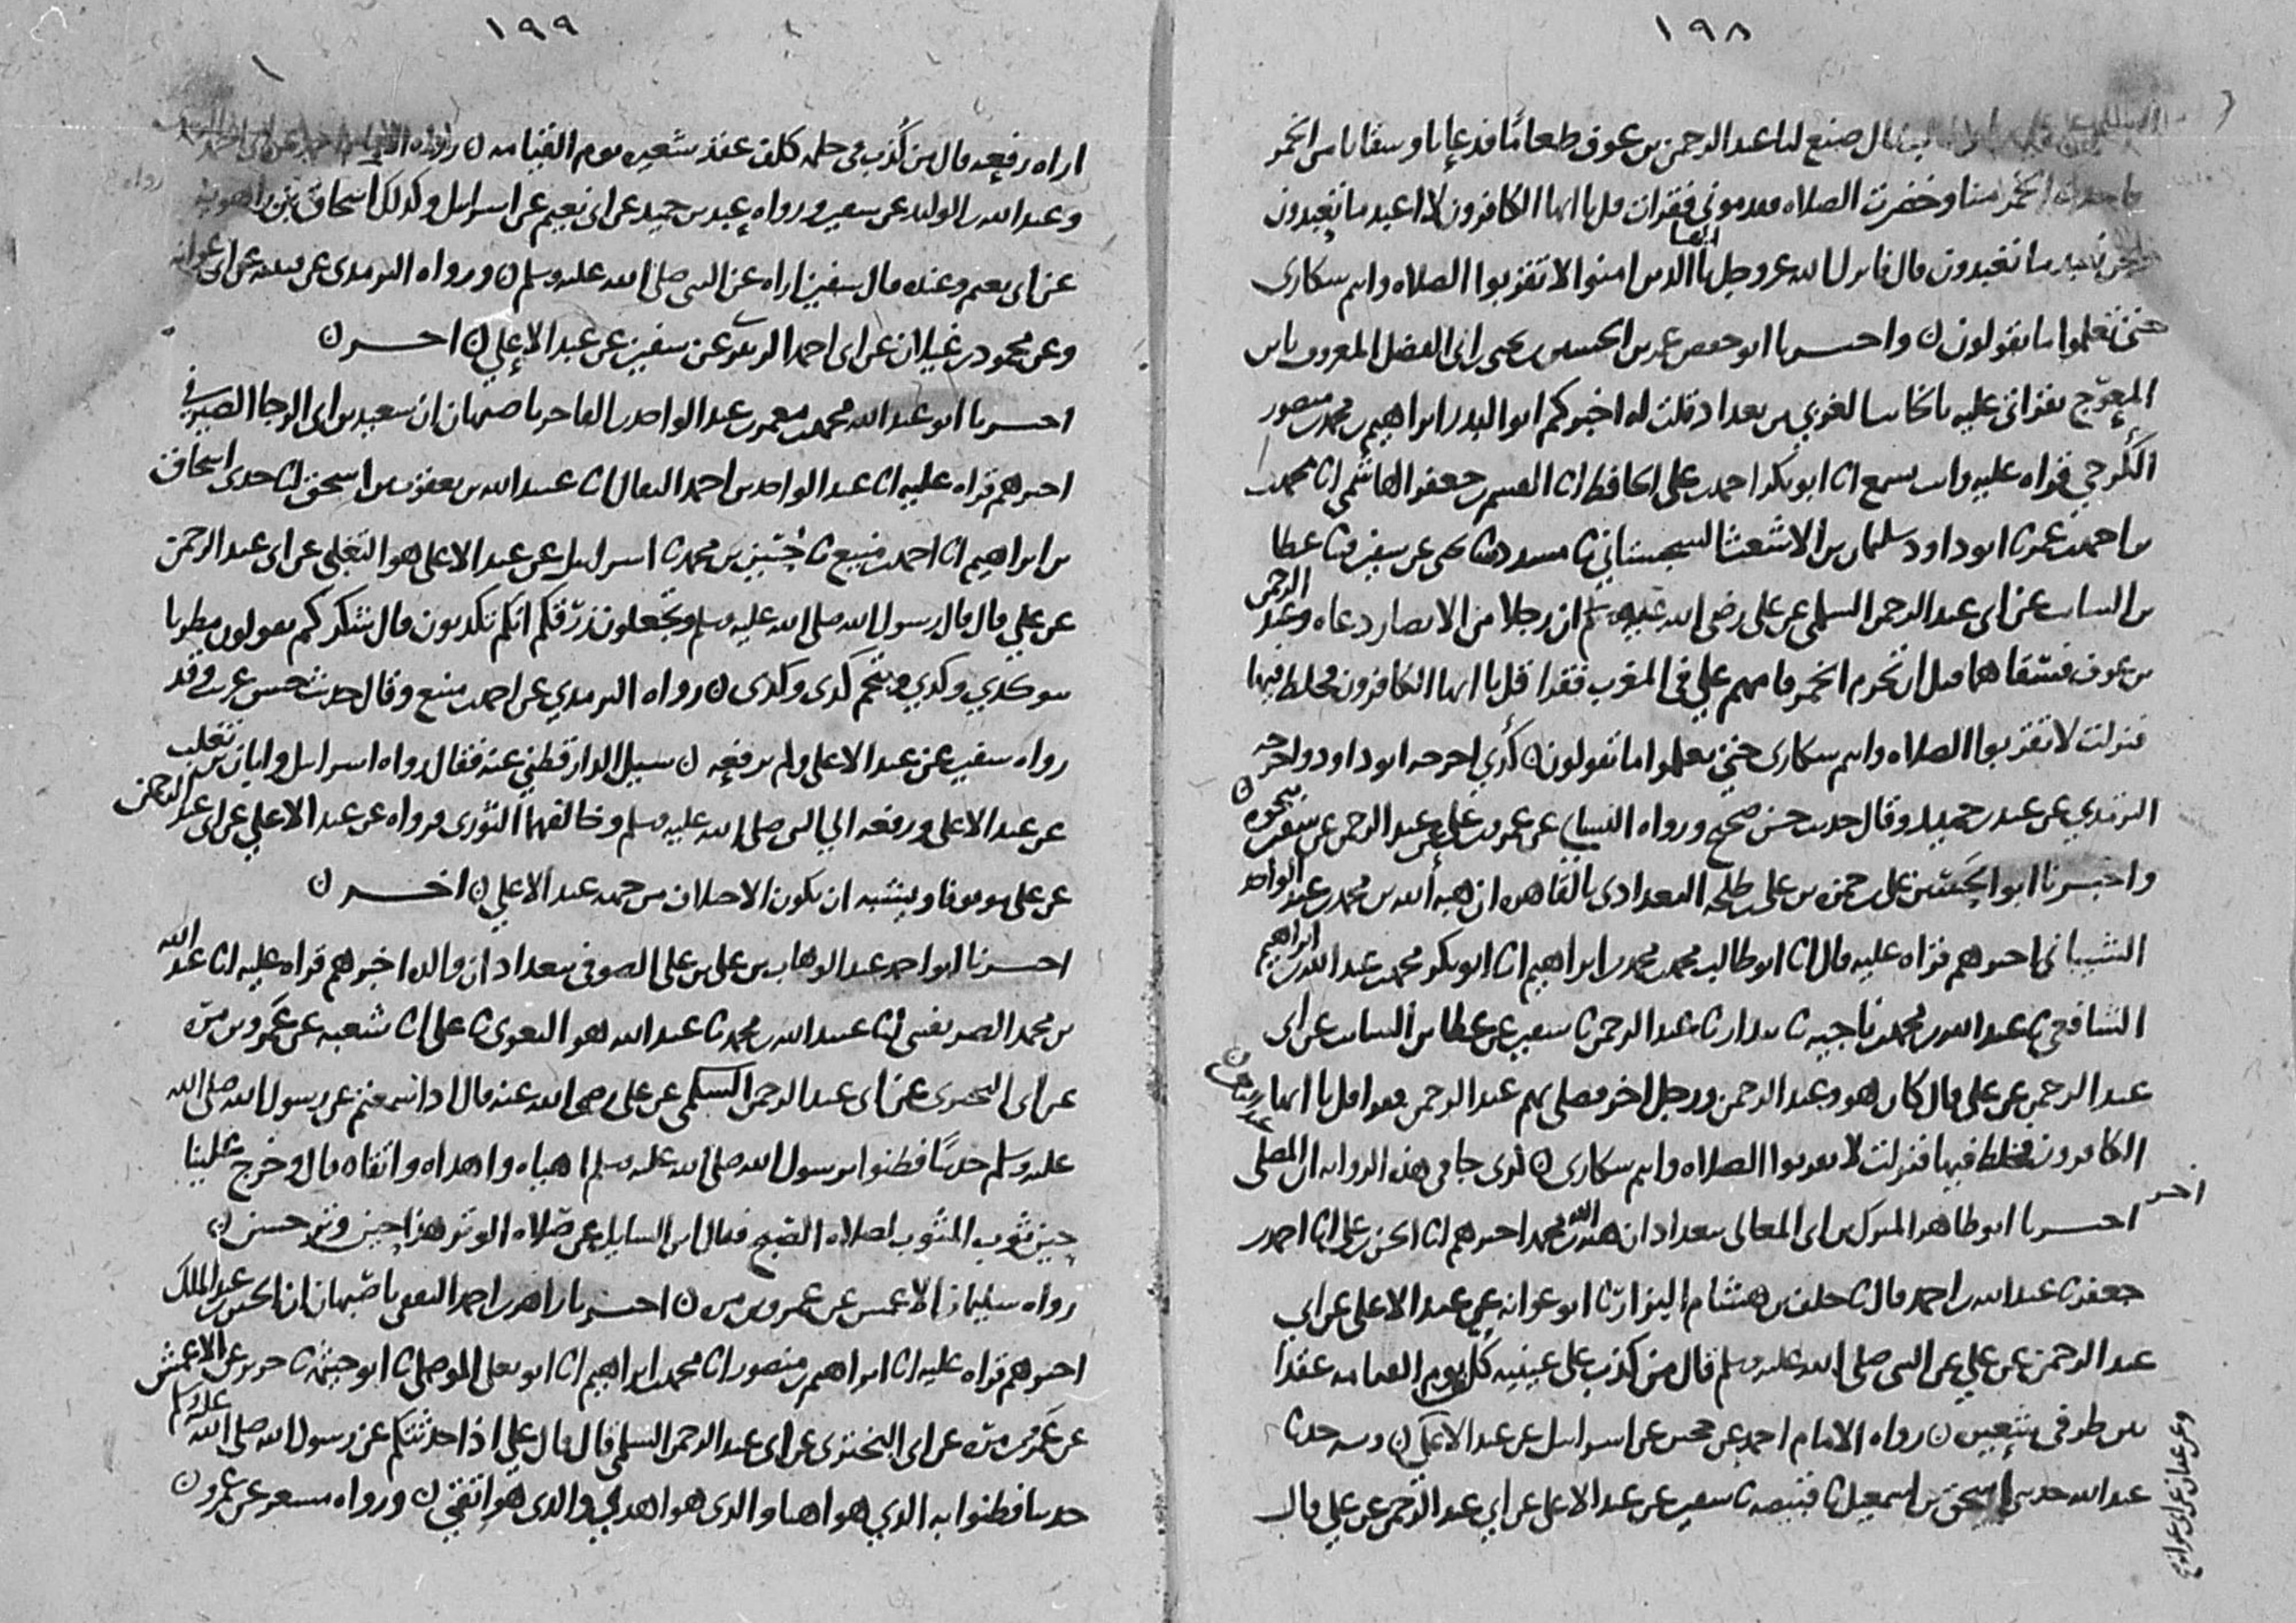 ١٩٨
قال صنع لنا عبد الرحمن بن عوف طعاما فدعانا وسقانا من الخمر
الخمر منا وحضرت الصلاه فقدموني فقرات قل يا ايها الكافرون لا اعبد ما تعبدون
ونحن نعبد ما تعبدون قال فانزل الله عز وجل يا ايها الذين امنوا لا تقربوا الصلاه وانتم سكارى
حتى تعلموا ما تقولون ن واخبرنا ابو حفص عمر بن الحسين بن يحيى بن ابي الفضل المعروف بابن
المعوج بقراتي عليه بالجانب الغربي من بغداد قلت له اخبركم ابو البدر ابراهيم بن محمد بن منصور
الكرخي قراه عليه وانت تسمع انا ابو بكر احمد بن علي الحافظ انا القسم بن جعفر الهاشمي انا محمد بن
احمد بن عمر نا ابو داود سليمان بن الاشعث السجستاني نا مسدد نا يحيى عن سفين نا عطا
بن السائب عن ابي عبد الرحمن السلمي عن علي رضي الله عنه ان رجلا من الانصار دعاه وعبد الرحمن
بن عوف فسقاهما قبل ان تحرم الخمر فامهم علي في المغرب فقرا قل يا ايها الكافرون فخلط فيها
فنزلت لا تقربوا الصلاه وانتم سكارى حتى تعلموا ما تقولون ن كذي اخرجه ابو داود واخرجه
الترمذي عن عبد بن حميد وقال حديث حسن صحيح ورواه النسائي عن عمرو بن علي عن عبد الرحمن عن سفين نحوه ن
واخبرنا ابو الحسن علي بن حمزه بن علي بن طلحه البغدادي بالقاهره ان هبه الله بن محمد بن عبد الواحد
الشيباني اخبرهم قراه عليه قال انا ابو طالب محمد بن محمد بن ابراهيم انا ابو بكر محمد بن عبد الله بن ابراهيم
الشافعي نا عبد الله بن محمد بن ناجيه نا بندار نا عبد الرحمن نا سفين عن عطا بن السائب عن ابي
عبد الرحمن عن علي قال كان هو وعبد الرحمن ورجل اخر فصلى بهم عبد الرحمن فقرا قل يا ايها
الكافرون فخلط فيها فنزلت لا تقربوا الصلاه وانتم سكارى ن كذى جا في هذه الروايه ان المصلي
اخر اخبرنا ابو طاهر المبرك بن ابي المعالي ببغداد ان هبه الله بن محمد اخبرهم انا الحسن بن علي انا احمد بن
جعفر نا عبد الله بن احمد قال نا خلف بن هشام البزار نا ابو عوانه عن عبد الاعلى عن ابي
عبد الرحمن عن علي عن النبي صلى الله عليه وسلم قال من كذب على عينيه كلف يوم القيامه عقدا
بين طرفي شعيره ن رواه الامام احمد عن حجين عن اسرائيل عن عبد الاعلى ن وبه حدثنا
عبد الله حدثني اسحق بن اسمعيل نا قبيصه نا سفين عن عبد الاعلى عن ابي عبد الرحمن عن علي قال
وعن عفان عن ابي عوانه
١٩٩
اراه رفعه قال من كذب في حلمه كلف عقد شعيره يوم القيامه ن رواه الامام احمد عن ابي احمد
وعبد الله بن الوليد عن سفين ورواه عبد بن حميد عن ابي نعيم عن اسرائيل وكذلك اسحاق بن راهويه
عن ابي نعيم وعنده قال سفين اراه عن النبي صلى الله عليه وسلم ن ورواه الترمذي عن قتيبه عن ابي عوانه
وعن محمود بن غيلان عن ابي احمد الزبيري عن سفين عن عبد الاعلى ن اخر ن
اخبرنا ابو عبد الله محمد بن معمر بن عبد الواحد بن الفاخر باصبهان ان سعيد بن ابي الرجا الصيرفي
اخبرهم قراه عليه انا عبد الواحد بن احمد البقال انا عبيد الله بن يعقوب بن اسحق انا جدي اسحاق
بن ابراهيم انا احمد بن منيع نا حسين بن محمد نا اسرائيل عن عبد الاعلى هو الثعلبي عن ابي عبد الرحمن
عن علي قال قال رسول الله صلى الله عليه وسلم وتجعلون رزقكم انكم تكذبون قال شكركم تقولون مطرنا
بنو كذي وكذي وبنجم كذى وكذى ن رواه الترمذي عن احمد بن منيع وقال حديث حسن غريب وقد
رواه سفين عن عبد الاعلى ولم يرفعه ن سيل الدارقطني عنه فقال رواه اسرائيل وابان بن تغلب
عن عبد الاعلى ورفعه الى النبي صلى الله عليه وسلم وخالفهما الثوري فرواه عن عبد الاعلى عن ابي عبد الرحمن
عن علي موقوفا ويشبه ان يكون الاختلاف من جهه عبد الاعلى ن اخر ن
اخبرنا ابو احمد عبد الوهاب بن علي بن علي الصوفي ببغداد ان والده اخبرهم قراه عليه انا عبد الله
بن محمد الصريفيني انا عبيد الله بن محمد نا عبد الله هو البغوي نا علي انا شعبه عن عمرو بن مره
عن ابي البختري عن ابي عبد الرحمن السلمي عن علي رضي الله عنه قال اذا سمعتم عن رسول الله صلى الله
عليه وسلم حديثا فظنوا برسول الله صلى الله عليه وسلم اهياه واهداه واتقاه قال وخرج علينا
حين ثوب المثوب لصلاه الصبح فقال اين السايل عن صلاه الوتر هذا حين وتر حسن ن
رواه سليمان الاعمش عن عمرو بن مره ن اخبرنا زاهر بن احمد الثقفي باصبهان ان الحسين بن عبد الملك
اخبرهم قراه عليه انا ابراهيم بن منصور انا محمد بن ابراهيم انا ابو يعلى الموصلي نا ابو خيثمه نا جرير عن الاعمش
عن عمرو بن مره عن ابي البختري عن ابي عبد الرحمن السلمي قال قال علي اذا حدثتكم عن رسول الله صلى الله عليه وسلم
حديثا فظنوا به الذي هو اهيا والذي هو اهدى والذي هو اتقى ن ورواه مسعر عن عمرو ن